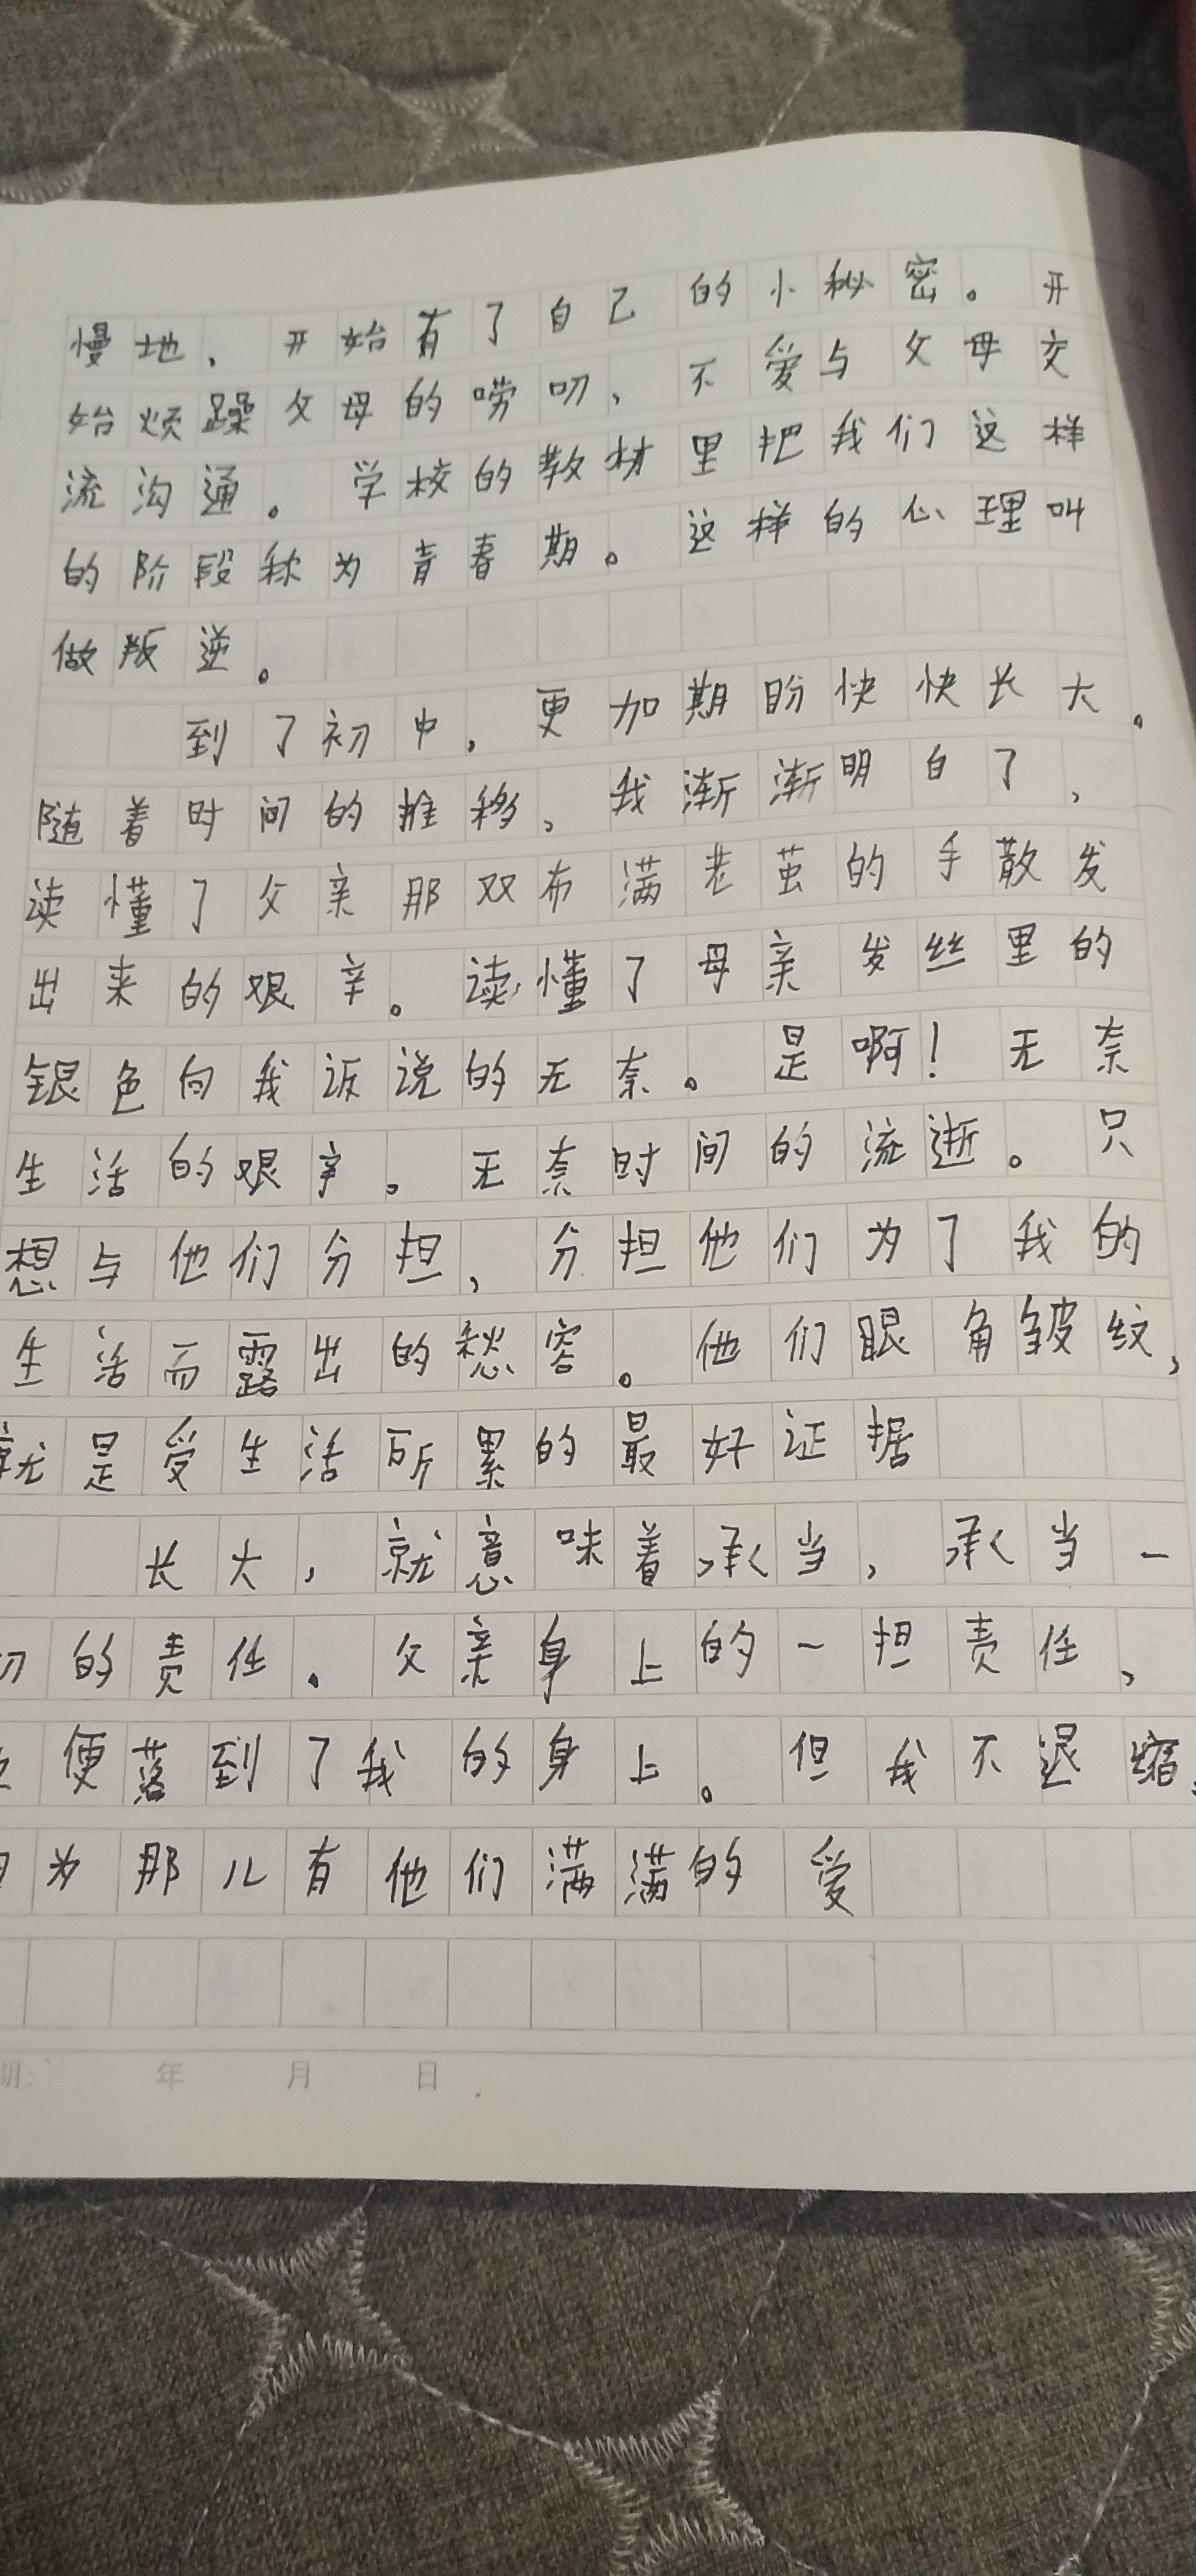 慢地，开始有了自己的小秘密。开
始烦躁父母的唠叨，不爱与父母交
流沟通。学校的教材里把我们这样
的阶段称为青春期。这样的心理叫
做叛逆。
到了初中，更加期盼快快长大。
随着时间的推移，我渐渐明白了，
读懂了父亲那双布满老茧的手散发
出来的艰辛。读懂了母亲发丝里的
银色向我诉说的无奈。是啊！无奈
生活的艰辛。无奈时间的流逝。只
想与他们分担，分担他们为了我的
生活而露出的愁容。他们眼角皱纹，
就是受生活所累的最好证据
长大，就意味着承当，承当一
切的责任。父亲身上的一担责任，
便落到了我的身上。但我不退缩，
为那儿有他们满满的爱
期：年 月 日